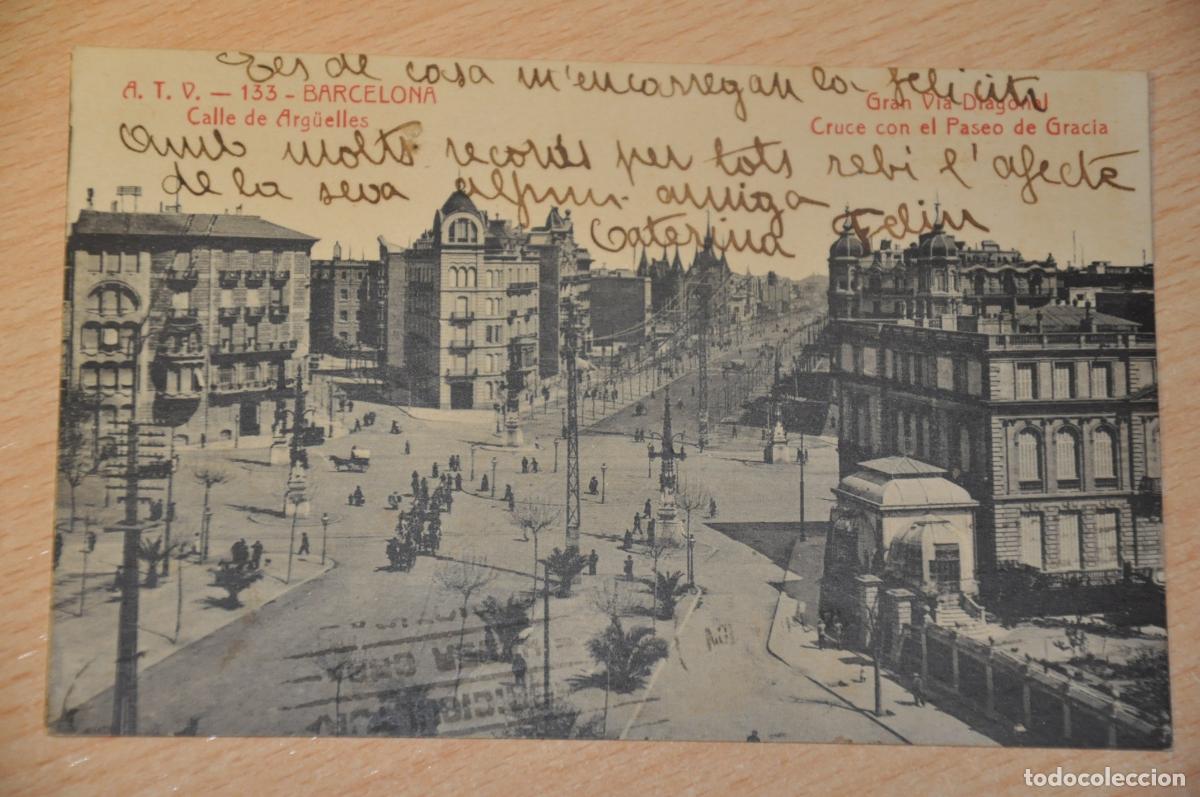 Tes de casa m'encarregan la felicite
A. T. V. — 133 - BARCELONA
Calle de Argüelles
Gran Via Diagonal
Cruce con el Paseo de Gracia
Amb molts records per tots rebi l'afecte
de la seva amiga
Caterina Feliu
todocoleccion